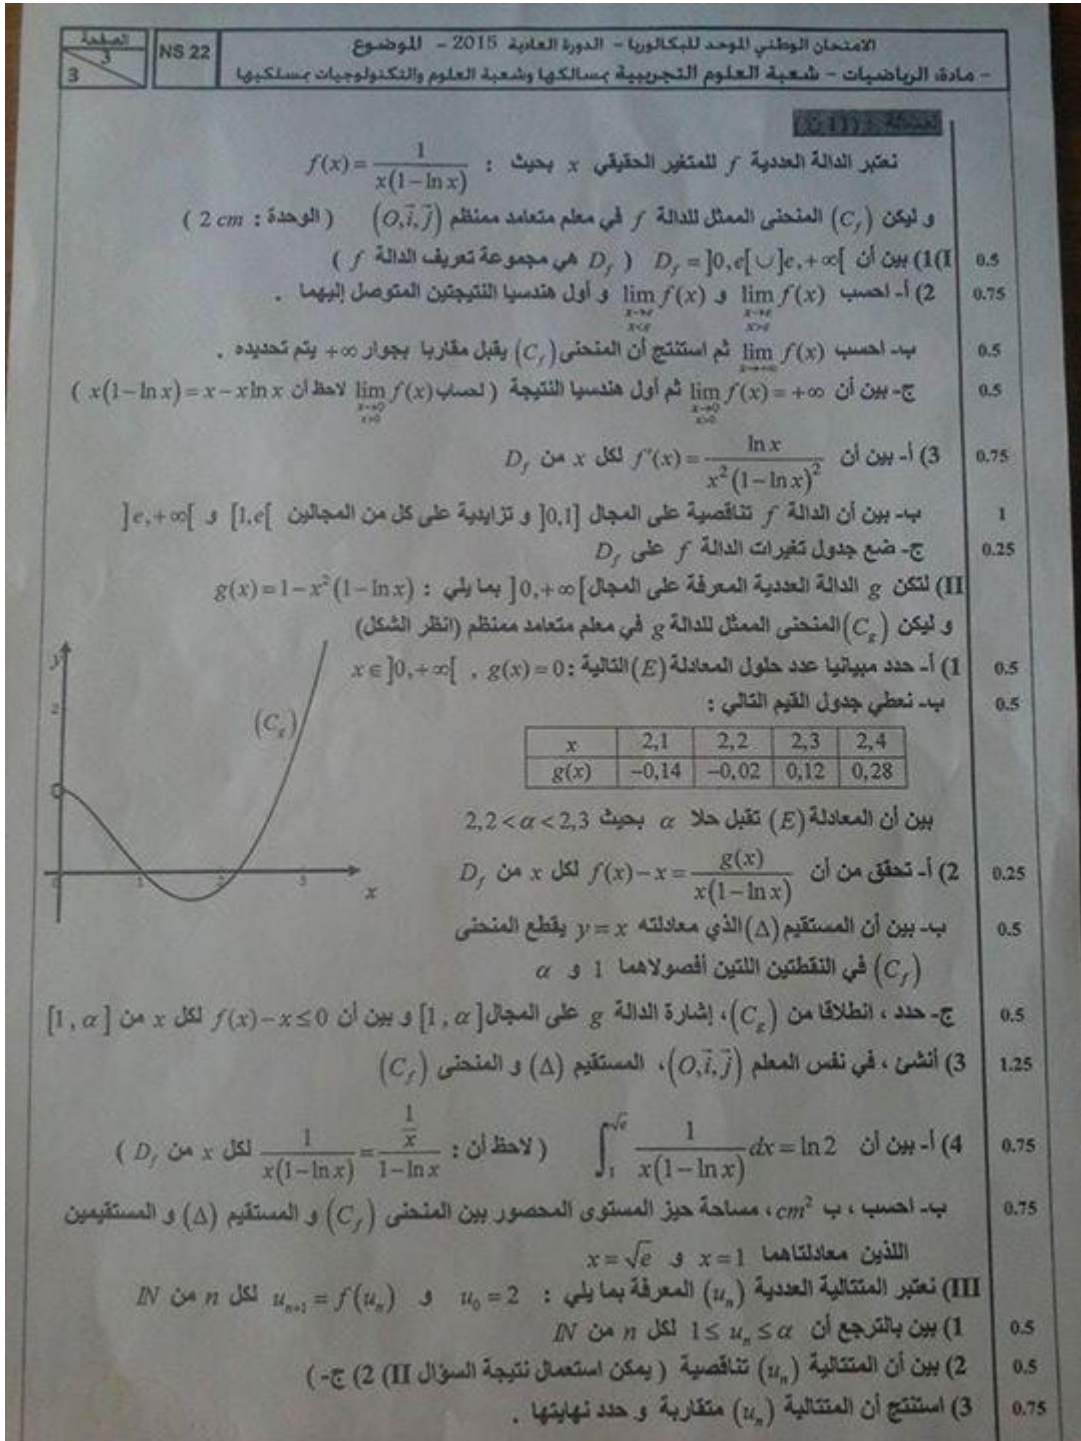 الصفحة
3
3
NS 22
الامتحان الوطني الموحد للبكالوريا - الدورة العادية 2015 - الموضوع
- مادة: الرياضيات - شعبة العلوم التجريبية بمسالكها وشعبة العلوم والتكنولوجيات بمسلكيها
مسألة : (11 ن)
نعتبر الدالة العددية f للمتغير الحقيقي x بحيث : f(x) = 1/(x(1-ln x))
و ليكن (C_f) المنحنى الممثل للدالة f في معلم متعامد ممنظم (O,i⃗,j⃗) ( الوحدة : 2 cm )
I)1) بين أن D_f = ]0,e[∪]e,+∞[ ( D_f هي مجموعة تعريف الدالة f ) 0.5
2) أ- احسب lim f(x) x→e x>e و lim f(x) x→e x<e و أول هندسيا النتيجتين المتوصل إليهما . 0.75
ب- احسب lim f(x) x→+∞ ثم استنتج أن المنحنى (C_f) يقبل مقاربا بجوار +∞ يتم تحديده . 0.5
ج- بين أن lim f(x) = +∞ x→0 x>0 ثم أول هندسيا النتيجة ( لحساب lim f(x) x→0 x>0 لاحظ أن x(1-ln x) = x - x ln x ) 0.5
3) أ- بين أن f'(x) = ln x/(x²(1-ln x)²) لكل x من D_f 0.75
ب- بين أن الدالة f تناقصية على المجال ]0,1] و تزايدية على كل من المجالين [1,e[ و ]e,+∞[ 1
ج- ضع جدول تغيرات الدالة f على D_f 0.25
II) لتكن g الدالة العددية المعرفة على المجال ]0,+∞[ بما يلي : g(x) = 1-x²(1-ln x)
و ليكن (C_g) المنحنى الممثل للدالة g في معلم متعامد ممنظم (انظر الشكل)
1) أ- حدد مبيانيا عدد حلول المعادلة (E) التالية : g(x) = 0 , x∈]0,+∞[ 0.5
ب- نعطي جدول القيم التالي : 0.5
x 2,1 2,2 2,3 2,4
g(x) -0,14 -0,02 0,12 0,28
y
2
(C_g)
0 1 2 3
x
بين أن المعادلة (E) تقبل حلا α بحيث 2,2 < α < 2,3
2) أ- تحقق من أن f(x) - x = g(x)/(x(1-ln x)) لكل x من D_f 0.25
ب- بين أن المستقيم (Δ) الذي معادلته y = x يقطع المنحنى 0.5
(C_f) في النقطتين اللتين أفصولاهما 1 و α
ج- حدد ، انطلاقا من (C_g)، إشارة الدالة g على المجال [1,α] و بين أن f(x) - x ≤ 0 لكل x من [1,α] 0.5
3) أنشئ ، في نفس المعلم (O,i⃗,j⃗)، المستقيم (Δ) و المنحنى (C_f) 1.25
4) أ- بين أن ∫₁^√e 1/(x(1-ln x)) dx = ln 2 ( لاحظ أن : 1/(x(1-ln x)) = (1/x)/(1-ln x) لكل x من D_f ) 0.75
ب- احسب ، ب cm² ، مساحة حيز المستوى المحصور بين المنحنى (C_f) و المستقيم (Δ) و المستقيمين 0.75
اللذين معادلتاهما x = 1 و x = √e
III) نعتبر المتتالية العددية (u_n) المعرفة بما يلي : u_0 = 2 و u_{n+1} = f(u_n) لكل n من IN
1) بين بالترجع أن 1 ≤ u_n ≤ α لكل n من IN 0.5
2) بين أن المتتالية (u_n) تناقصية ( يمكن استعمال نتيجة السؤال II) 2) ج- ) 0.5
3) استنتج أن المتتالية (u_n) متقاربة و حدد نهايتها . 0.75